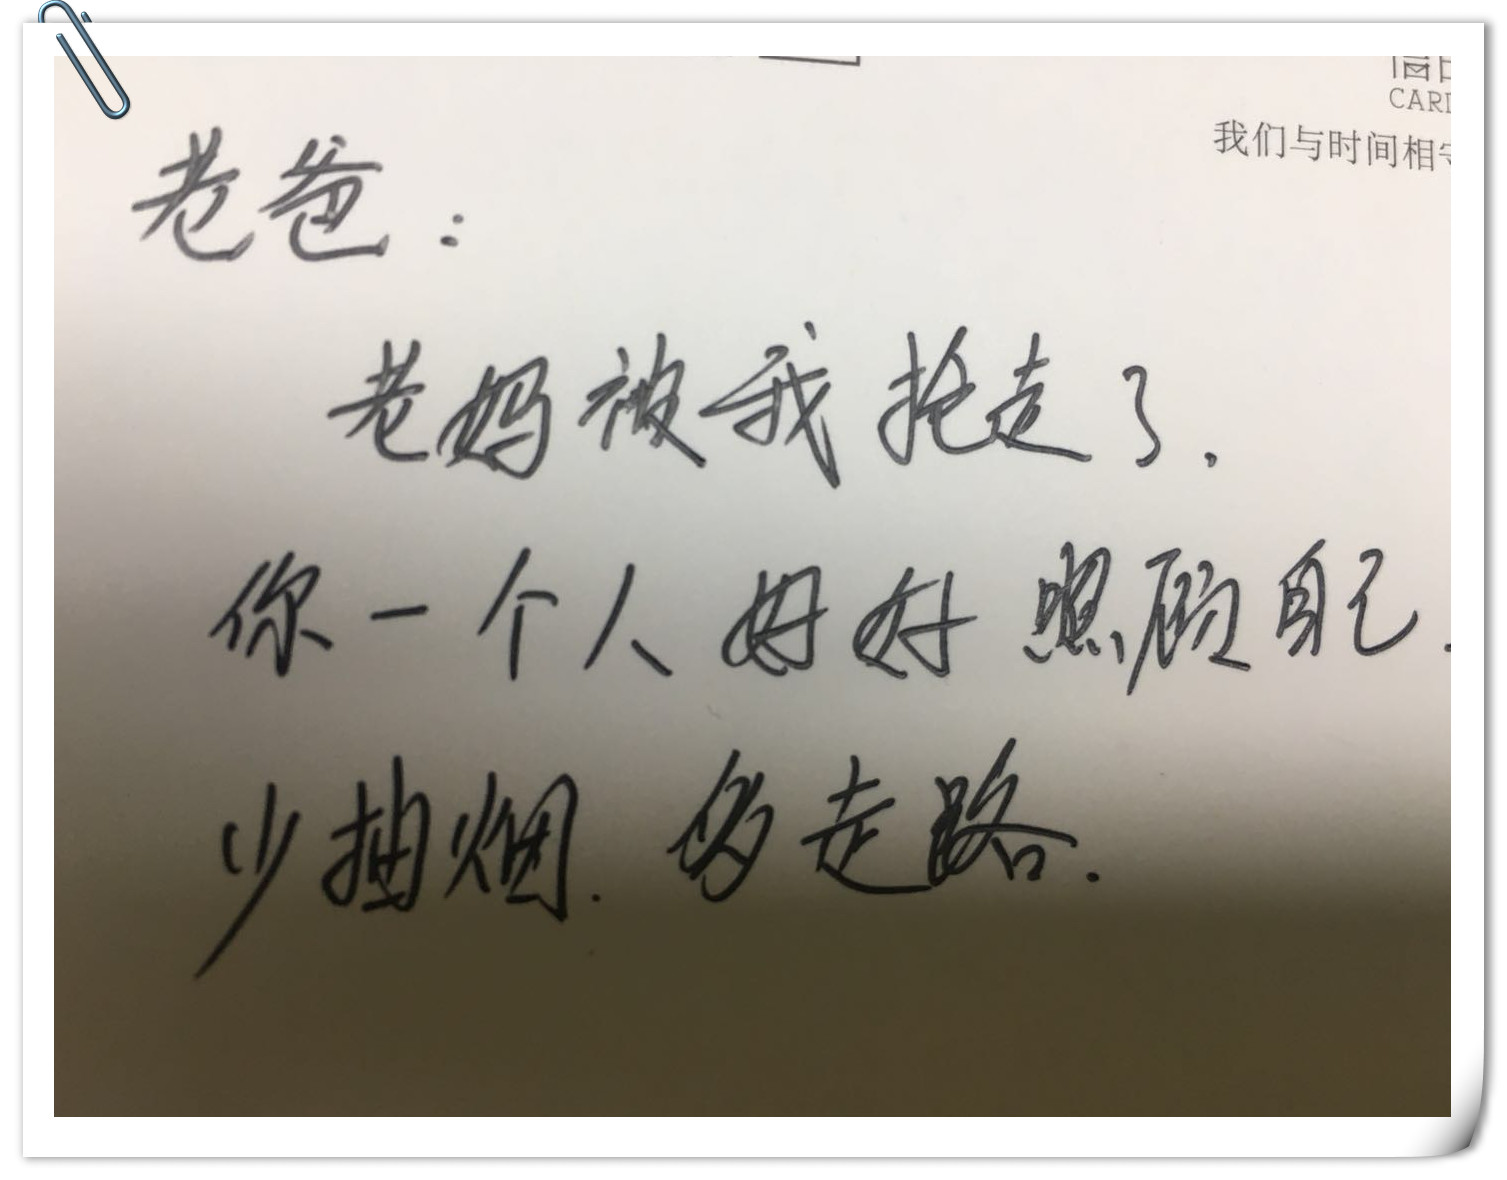 CARD
我们与时间相守
老爸:
老妈被我抢走了.
你一个人好好照顾自己.
少抽烟.多走路.